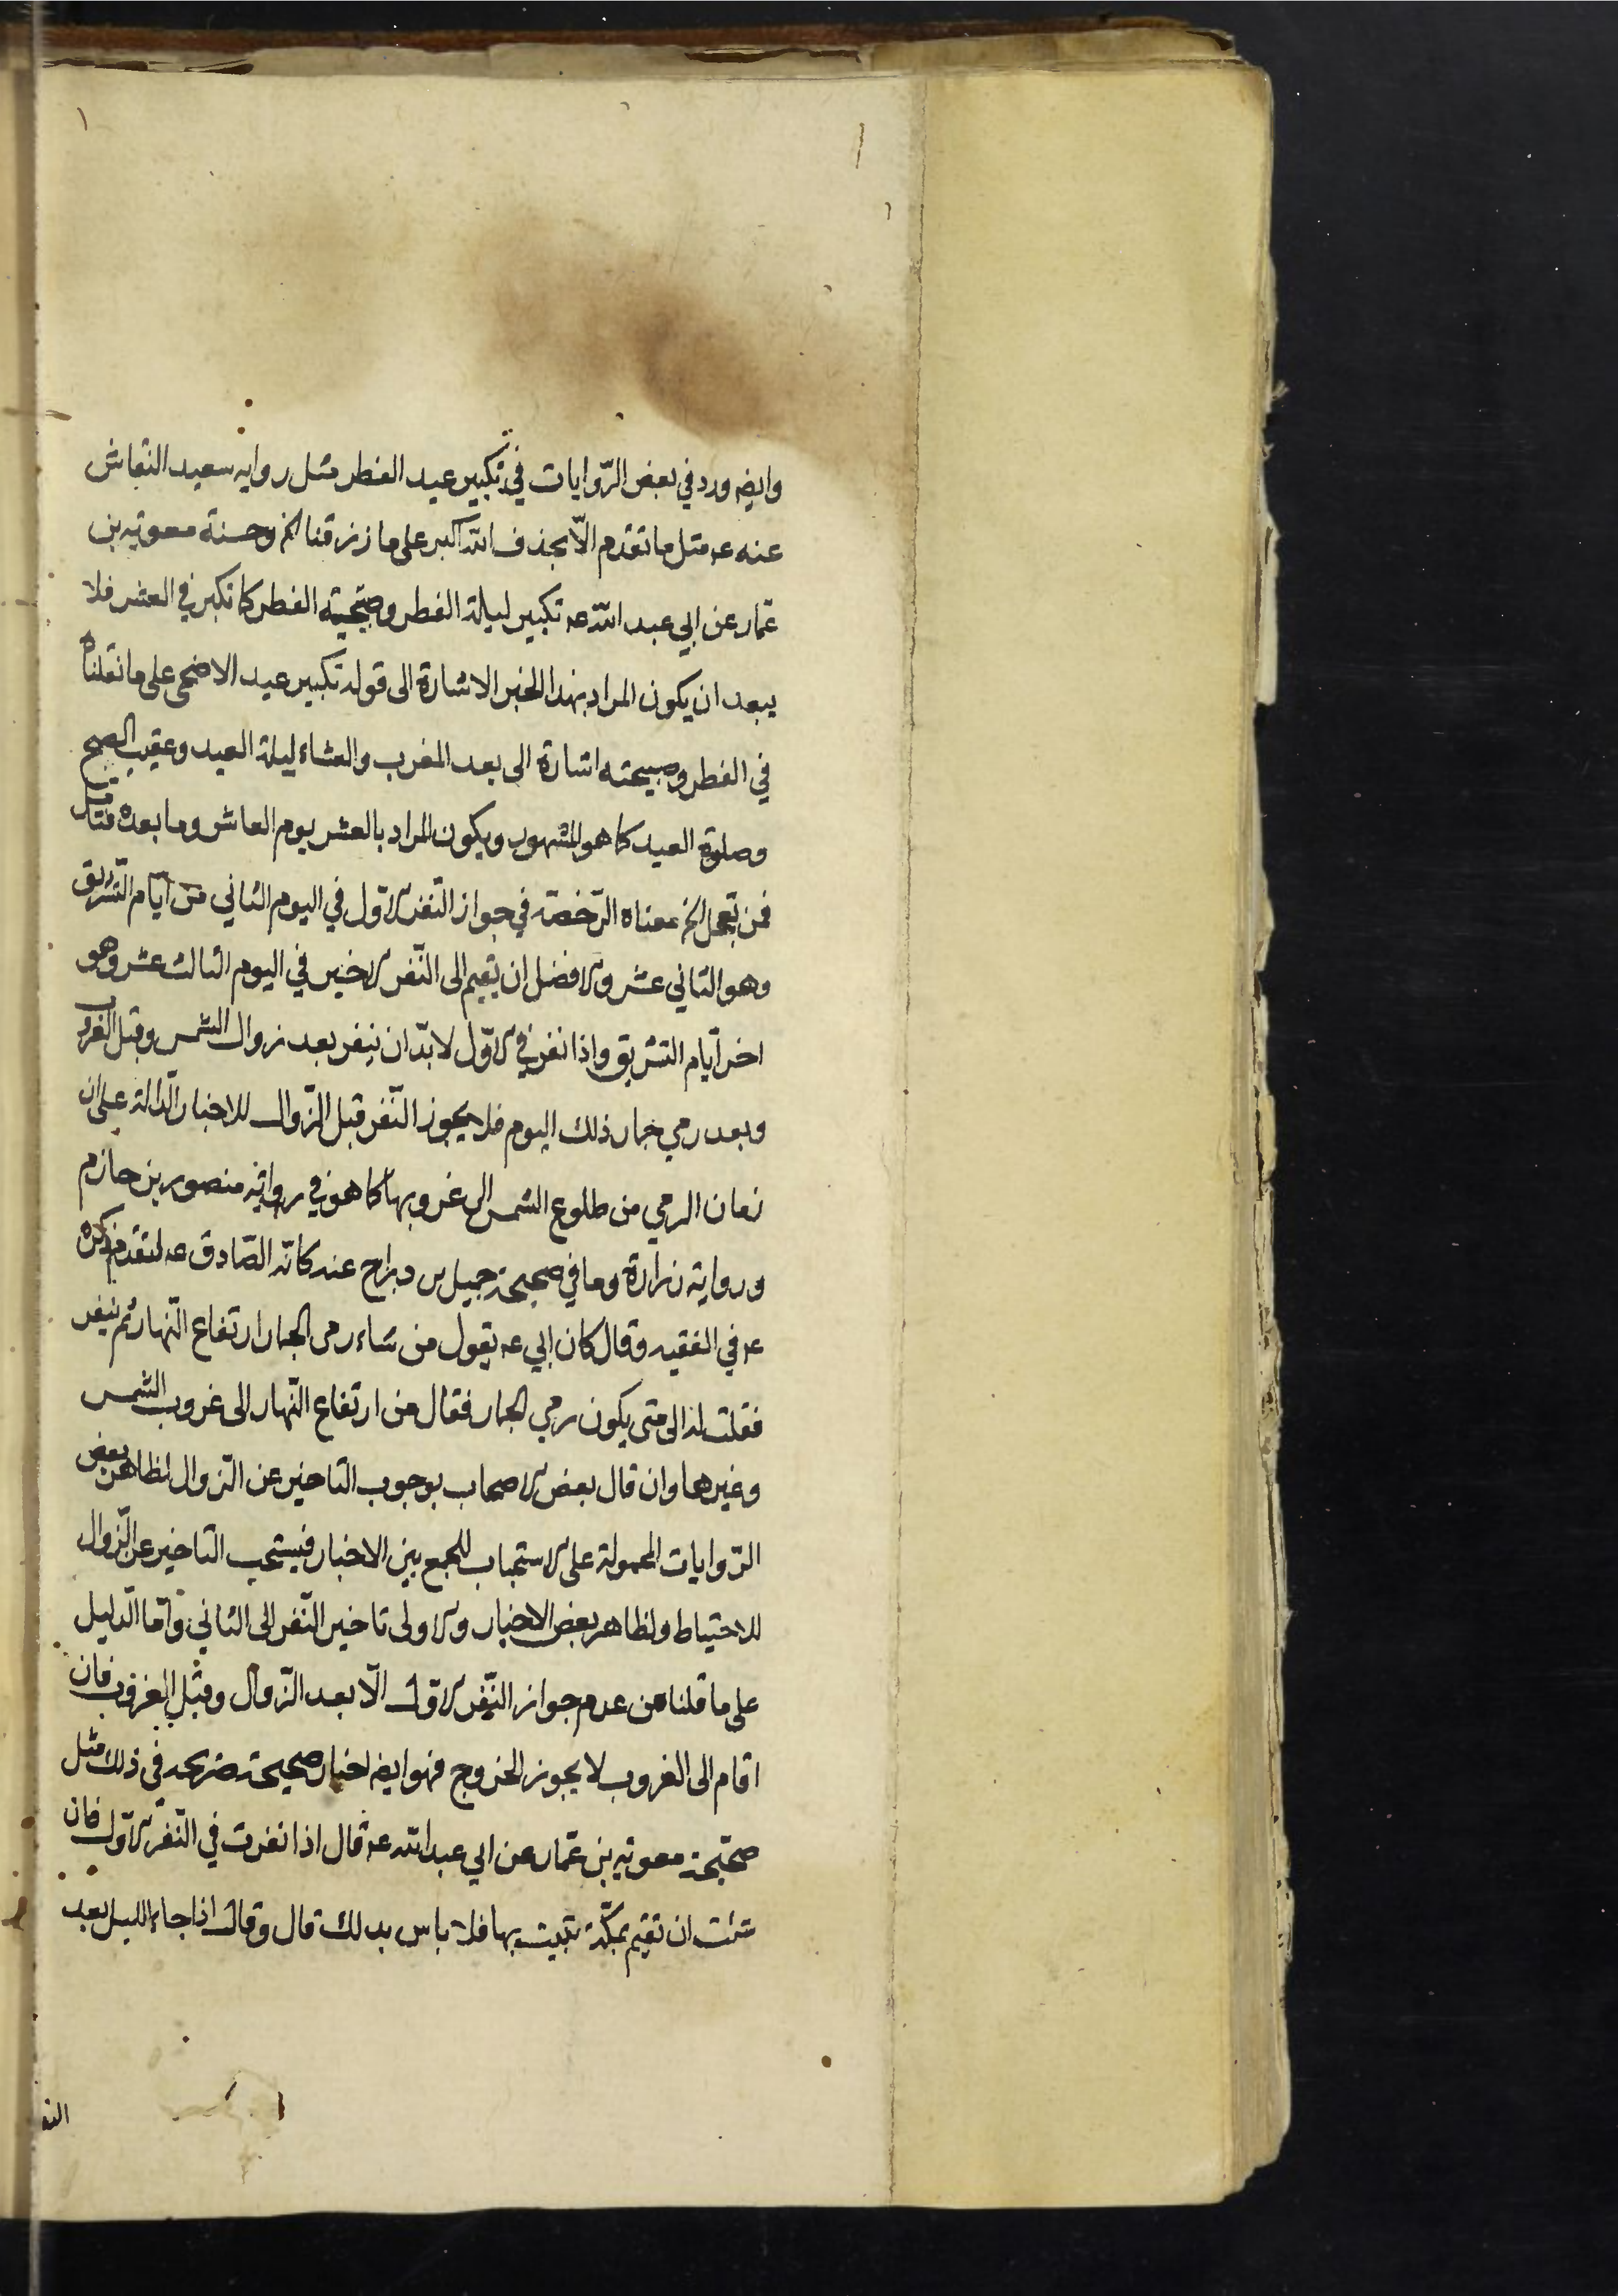 وايضه ورد في بعض الرّوايات في تكبير عيد الفطر مثل روايه سعيد النقاش
عنه عه مثل ما تقدم الّا بحذف الله اكبر على ما رزقنا الخ وحسنة معويه بن
عمّار عن ابي عبد الله عه تكبير ليلة الفطر وصبيحة الفطر كما تكبر في العشر فلا
يبعد ان يكون المراد بهذا الخبر الاشارة الى قوله تكبير عيد الاضحى على ما نقلناه
في الفطر وصبيحته اشارة الى بعد المغرب والعشاء ليلة العيد وعقيب الصبح
وصلوة العيد كما هو المشهور ويكون المراد بالعشر يوم العاشر وما بعده فتأمل
فمن تعجل الخ معناه الرّخصة في جواز النفر الاول في اليوم الثاني من ايّام التشريق
وهو الثاني عشر والافضل ان يقيم الى النّفر الاخير في اليوم الثالث عشر وهو
اخر ايّام التشريق واذا نفر في الاوّل لا بدّ ان ينفر بعد زوال الشمس وقبل الغروب
وبعد رمي جمار ذلك اليوم فلا يجوز النّفر قبل الزّوال للاخبار الدّالة على ان
زمان الرمي من طلوع الشمس الى غروبها كما هو في رواية منصور بن حازم
ورواية زرارة وما في صحيحة جميل بن دراج عنه كانّه الصّادق عه لتقدم ذكره
عه في الفقيه وقال كان ابي عه يقول من شاء رمى الجمار ارتفاع النّهار ثم ينفر
فقلت له الى متى يكون رمي الجمار فقال من ارتفاع النّهار الى غروب الشمس
وغيرها وان قال بعض الاصحاب بوجوب التاخير عن الزوال لظاهر بعض
الرّوايات المحمولة على الاستحباب للجمع بين الاخبار فيستحب التاخير عن الزّوال
للاحتياط ولظاهر بعض الاخبار والاولى تاخير النّفر الى الثاني وامّا الدّليل
على ما قلنا من عدم جواز النّفر الاول الّا بعد الزّوال وقبل الغروب فان
اقام الى الغروب لا يجوز الخروج فهو ايضه اخبار صحيحة صريحة في ذلك مثل
صحيحة معويه بن عمّار عن ابي عبد الله عه قال اذا نفرت في النّفر الاول فان
شئت ان تقيم بمكّة تبيت بها فلا باس بذلك قال وقال اذا جاء الليل بعد
النفر